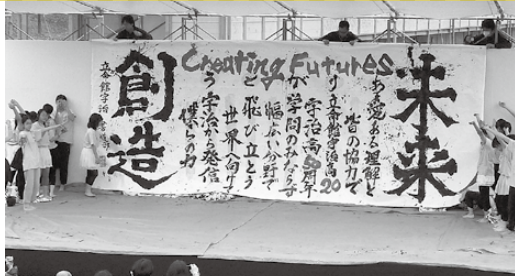 Creating Futures
未来
ある愛ある理解と
皆の協力で
り立命館宇治高20
宇治高50周年
が学問のみならず
幅広い分野で
と飛び立とう
世界へ向けて
う宇治から発信
僕らの力
創造
立命館宇治 書道部